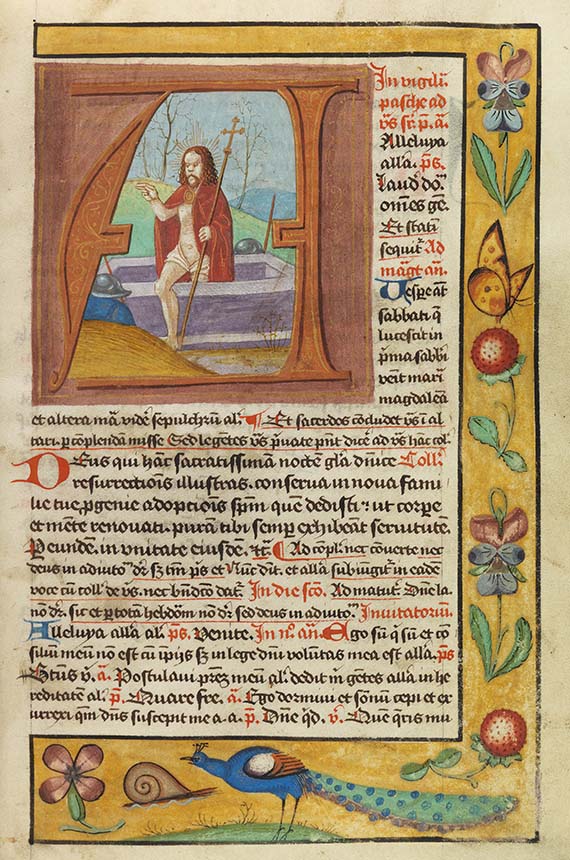 In vigiliis
pasche ad
vs̄ sr̄. p̄. a.
Alleluya
alla. p̄s.
Laud̄ do.
om̄es gē.
Et stati
sequit̄ Ad
mag̅t an̄.
Vespe aūt
sabbati q̄
lucescit in
p̄ma sabbi
venit mari
magdalēa
et altera mā. vidē sepulchrū al. ¶ Et sacerdos cōcludet vs̄ ī al
tari. p̄ complendā misse Sed legētes vs̄ p̄uate pn̄t dicē ad vs̄ hāc col.
Deus qui hāc sacratissimā noctē glā dn̄ice Coll.
resurrectionis illustras. conserva in noua fami
lie tue p̄genie adoptionis sp̄m quē dedisti ⁊ ut corpe
et mēte renouati. purā tibi semp exhibeāt servitutē.
P eundē. in vnitate eiusdē. ⁊c̄. ¶ Ad cōpl. nec cōverte nec
deus in adiuto dr̄. sꝫ tm̄ p̄s et Nūc dit. et alla subiūgit̄ in eadē
voce cū coll. de vs̄. nec bn̄dcō dat̄. In die scō. Ad matut̄. Dn̄e la.
nō dr̄. sic et p̄ totā hebdom̄ nō dr̄ sed deus in adiuto. Invitatorium.
Alleluya alla al. p̄s. Venite. In nō. an̄. Ego sū q̄ sū et cō
siliū meū nō est cū īpiis sꝫ in lege dn̄i volūtas mea est alla. p̄s
Btūs v̄. a. Postulavi prēꝫ meū al. dedit m̄ gētes alla in he
reditatē al. p̄. Quare fre. a. Ego dormivi et somnū cepi et ex
urrexi qm̄ dn̄s suscepit me a. a. p̄. Dn̄e q̄d. v̄. Que q̄ris mu